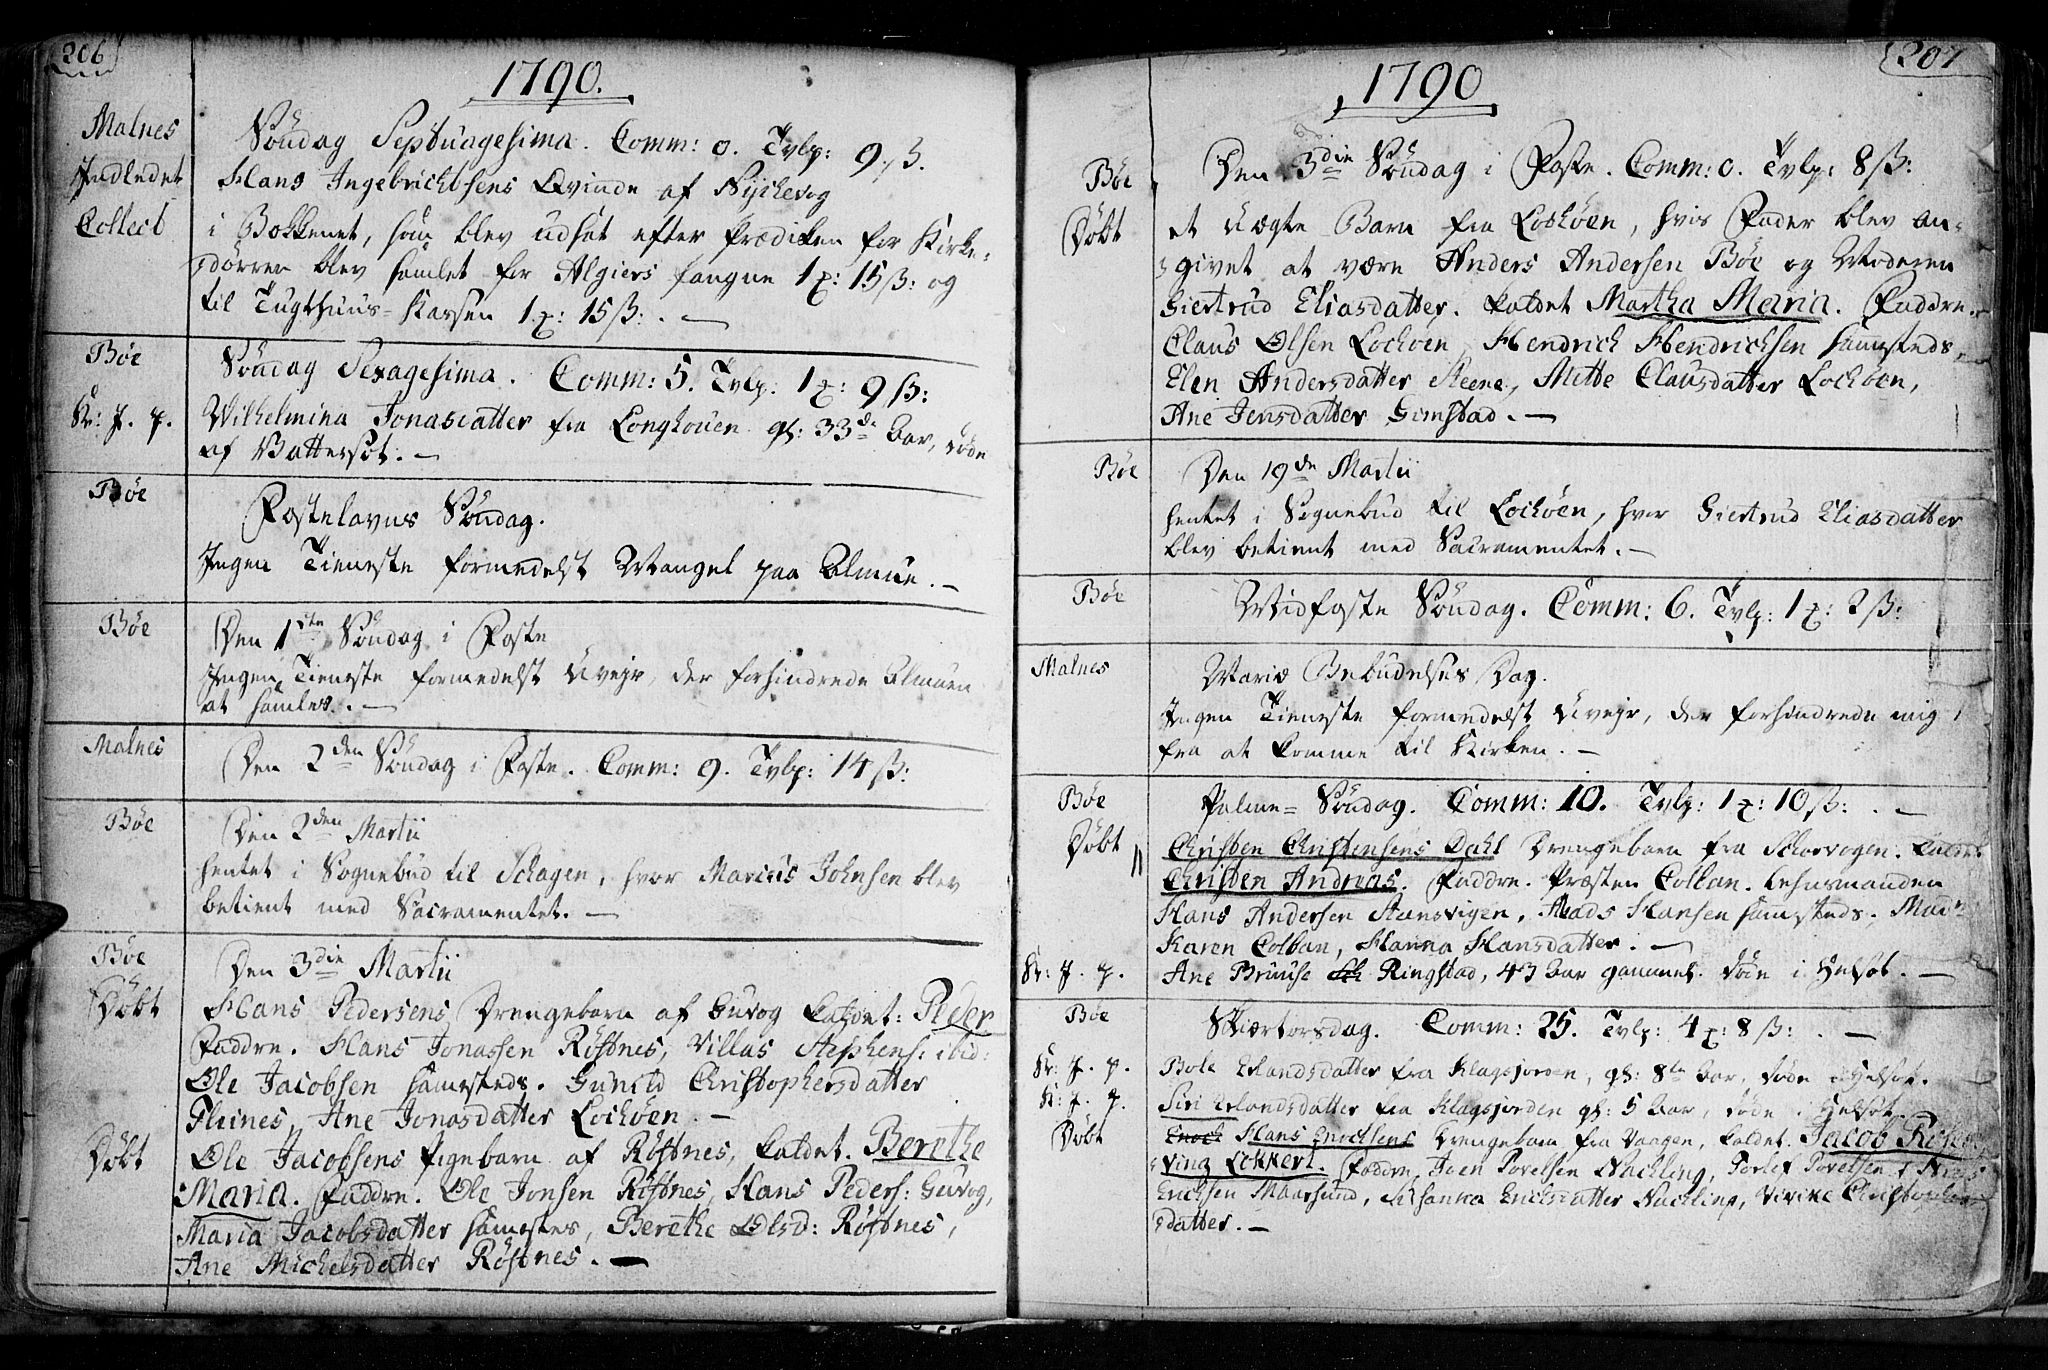 206
1790.
Malnes
Søndag Septuagesima. Comm: 0. Tvlp: 9 ß.
Indledet
Hans Ingebrichtsens Qvinde af Nÿchevog
Collect
i Bekkenet, som blev udsat efter Prædiken for Kirke-
dørren blev samlet for Algiers fangne 1 x: 15 ß: og
til Tugthuus-Kassen 1 x: 15 ß: . —
Bøe
Søndag Sexagesima. Comm: 5. Tvlp: 1 x: 9 ß:
Kr: J. p.
Wilhelmina Jonasdatter fra Longhouen gl: 33 de Aar, døde
af Vattersot. —
Bøe
Fastelavns Søndag.
Ingen Tieneste formedelst Mangel paa Almue. —
Bøe
Den 1ste Søndag i Faste
Ingen Tieneste formedelst Uvejr, der forhindrede Almuen
at samles. —
Malnes
Den 2den Søndag i Faste. Comm: 9. Tvlp: 14 ß:
Bøe
Den 2den Martii
hentet i Sognebud til Schagen, hvor Marcus Johnsen blev
betient med Sacramentet. —
Bøe
Den 3die Martii
Døbt
Hans Pedersens Drengebarn af Guvog kaldet: Peder
Faddre. Hans Jonassen Røstnes, Villas Stephens: ibid:
Ole Jacobsen samesteds. Gunild Christophersdatter
Fleines, Ane Jonasdatter Lochøen. —
Døbt
Ole Jacobsens Pigebarn af Røstnes, kaldet. Berethe
Maria. Faddre. Ole Jonsen Røstnes, Hans Peders: Guvog,
Maria Jacobsdatter samestes, Berethe Olsd: Røstnes,
Ane Michelsdatter Røstnes. —
207
1790
Bøe
Den 3die Søndag i Faste. Comm: 0. Tvlp: 8 ß:
Døbt
et uægte Barn fra Lochøen, hvis Fader blev an-
givet at være Anders Andersen Bøe og Moderen
Giertrud Eliasdatter. kaldet Martha Maria. Faddre.
Claus Olsen Lochøen, Hendrich Hendrichsen samesteds,
Elen Andersdatter Steene, Mette Clausdatter Lochøen,
Ane Jensdatter Gimstad. —
Bøe
Den 19de Martii
hentet i Sognebud til Lochøen, hvor Giertrud Eliasdatter
blev betient med Sacramentet. —
Bøe
Midfaste Søndag. Comm: 6. Tvlp: 1 x: 2 ß:
Malnes
Mariæ Bebudelses Dag.
Ingen Tieneste formedelst Uvejr, der forhindrede mig
fra at komme til Kirken. —
Bøe
Palme-Søndag. Comm: 10. Tvlp: 1 x: 10 ß: . —
Døbt
Christen Christensens Dahl Drengebarn fra Schorvogen.
Christen Andreas. Faddre. Præsten Colban. Lehnsmanden
Hans Andersen Steensvigen, Mads Hansen samesteds. Mad:
Karen Colban, Hanna Hansdatter. —
Kr: J. p.
Ane Bruuse Ringstad, 43 Aar gammel. døde i Helsot. —
Bøe
Skiærtorsdag. Comm: 25. Tvlp: 4 x: 8 ß: . —
Kr: J. p.
Bole Erlandsdatter fra Klagsjorden, gl: 8te Aar, døde i Helsot.
K: J. p.
Siri Erlandsdatter fra Klagsjorden gl: 5 Aar, døde i Helsot.
Døbt
Enock Hans Enochsens Drengebarn fra Vaagen, kaldet. Jacob
Ving Lockert. Faddre, Joen Povelsen Nachling, Torlef Povelsen,
Erichsen Maarsund, Susanna Erichsdatter Nachling, Virike Christopher
datter. —